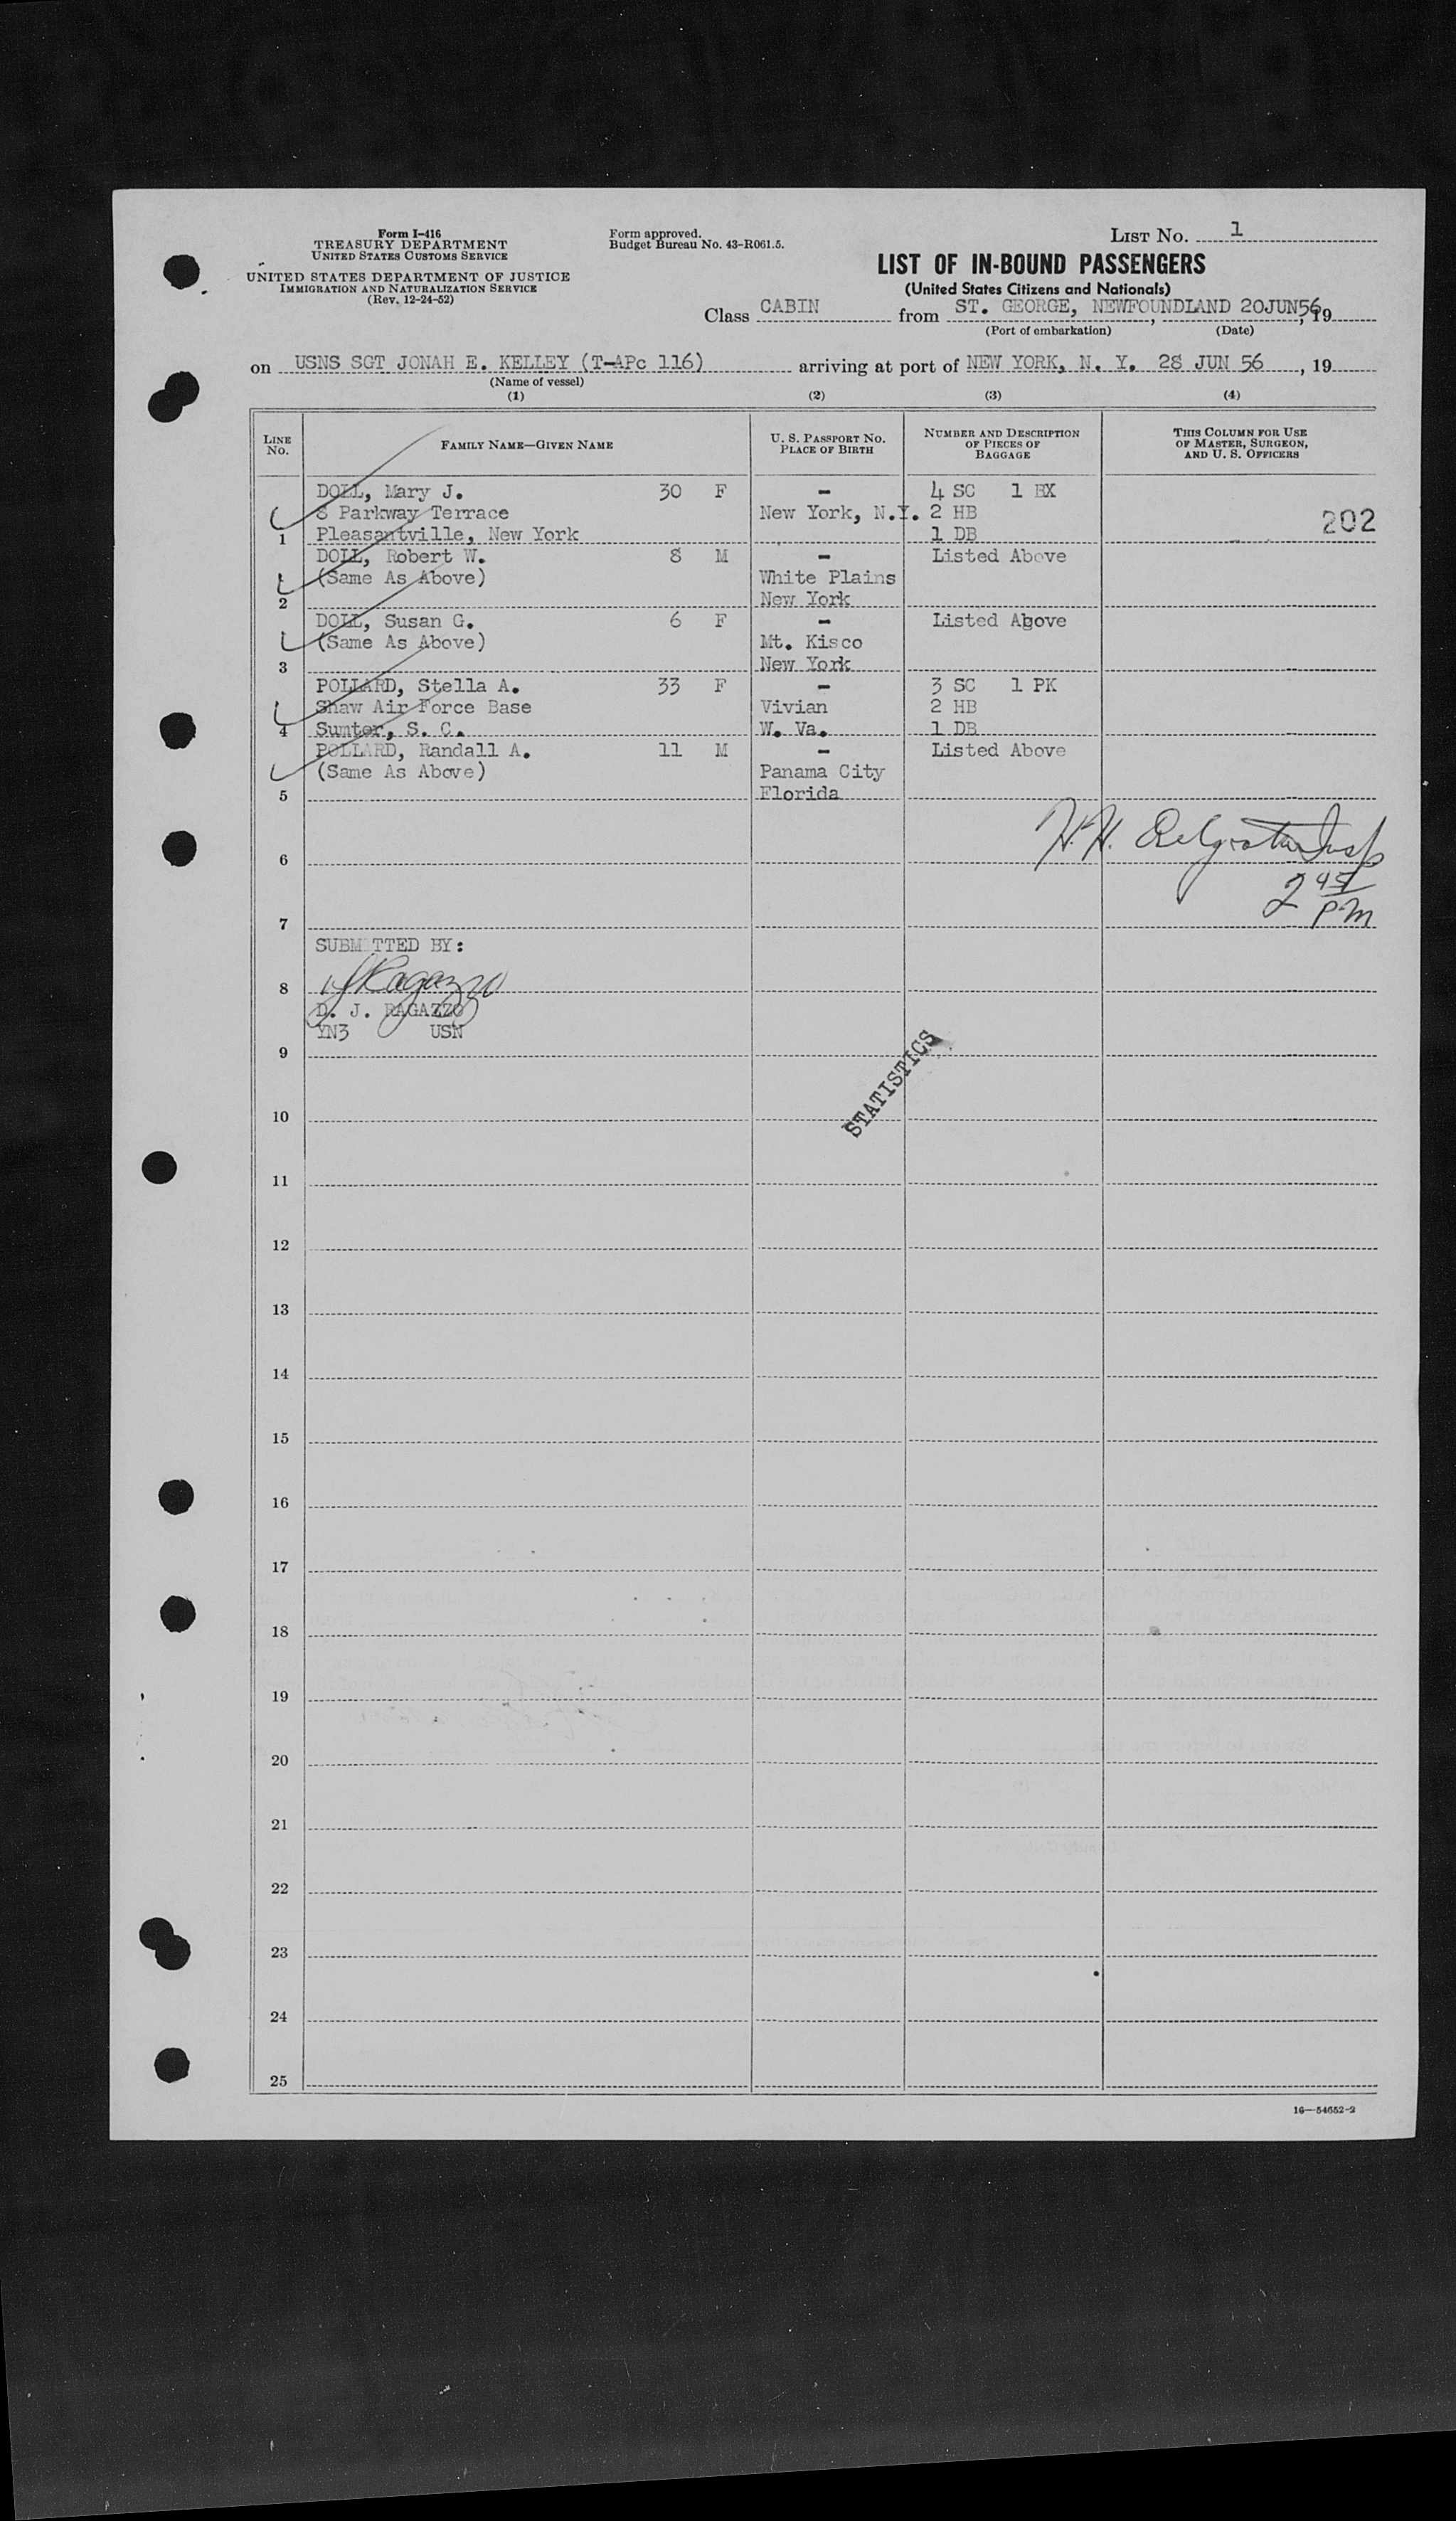 Form I-416
TREASURY DEPARTMENT
UNITED STATES CUSTOMS SERVICE
UNITED STATES DEPARTMENT OF JUSTICE
IMMIGRATION AND NATURALIZATION SERVICE
(Rev. 12-24-52)
Form approved.
Budget Bureau No. 43-R061.5.
LIST NO. 1
LIST OF IN-BOUND PASSENGERS
(United States Citizens and Nationals)
Class CABIN from ST. GEORGE, NEWFOUNDLAND 20JUN56, 19
(Port of embarkation) (Date)
on USNS SGT JONAH E. KELLEY (T-APc 116) arriving at port of NEW YORK, N. Y. 28 JUN 56, 19
(Name of vessel)
(1) (2) (3) (4)
LINE NO. FAMILY NAME—GIVEN NAME U. S. PASSPORT NO. PLACE OF BIRTH NUMBER AND DESCRIPTION OF PIECES OF BAGGAGE THIS COLUMN FOR USE OF MASTER, SURGEON, AND U. S. OFFICERS
DOLL, Mary J. 30 F - 4 SC 1 BX
8 Parkway Terrace New York, N.Y. 2 HB 202
1 Pleasantville, New York 1 DB
DOLL, Robert W. 8 M - Listed Above
(Same As Above) White Plains
2 New York
DOLL, Susan G. 6 F - Listed Above
(Same As Above) Mt. Kisco
3 New York
POLLARD, Stella A. 33 F - 3 SC 1 PK
Shaw Air Force Base Vivian 2 HB
4 Sumter, S. C. W. Va. 1 DB
POLLARD, Randall A. 11 M - Listed Above
(Same As Above) Panama City
5 Florida
H. H. Insp
6
2 45
PM
7
SUBMITTED BY:
8 Ragazzo
D. J. RAGAZZO
YN3 USN
9
STATISTICS
10
11
12
13
14
15
16
17
18
19
20
21
22
23
24
25
16—54652-2